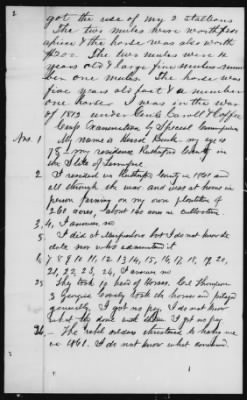 2
got the use of my 2 stallions
The two mules were worth $200
apiece & the horse was also worth
$200. The two mules were 4
years old & large fine mules num-
ber one mules. The horse was
five years old fast & a number
one horse. I was in the war
of 1812 under Genls Carroll & Coffee
Ans. 1 My name is Burk, my age is
78 - my residence Rutherford County in
the State of Tennessee
2 I resided in Rutherford County in 1860 and
all through the war and was at home in
person farming on my own plantation of
260 acres, about 160 acres in cultivation
3, 4, I answer no
5 I did at Murfreesboro but I do not know the
date nor who administered it
6, 7, 8, 9, 10, 11, 12, 13, 14, 15, 16, 17, 18, 19, 20,
21, 22, 23, 24, I answer no
25 They took 10 head of Horses. Col Thompson
3 Georgia County took the horses and pledged
generally. I got no pay I do not know
what they done with them I got no pay
26 - The rebel soldiers threatened to hang me
in 1861. I do not know what command.